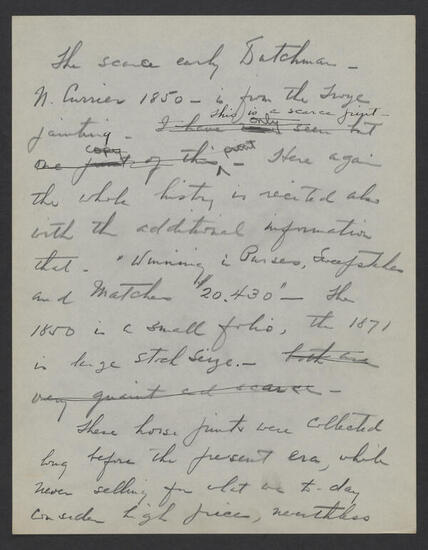 The scarce early Dutchman -
N. Currier 1850 - is from the Troye
This is a scarce print -
painting - I have only seen but
one copy print of this print - Here again
the whole history is recited also
with the additional information
that - "Winning in Purses, Sweepstakes
and Matches "$20.430" - The
1850 is a small folio, the 1871
is large stock size. - both are
very quaint and scarce -
These horse prints were collected
long before the present era, while
never selling for what we to-day
consider high price, nevertheless